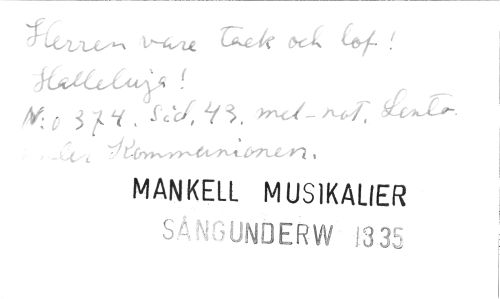 Herren vare tack och lof!
Halleluja!
N:o 374. Sid. 43. mel-not. Lento.
under Kommunionen.
MANKELL MUSIKALIER
SÅNGUNDERW 1835